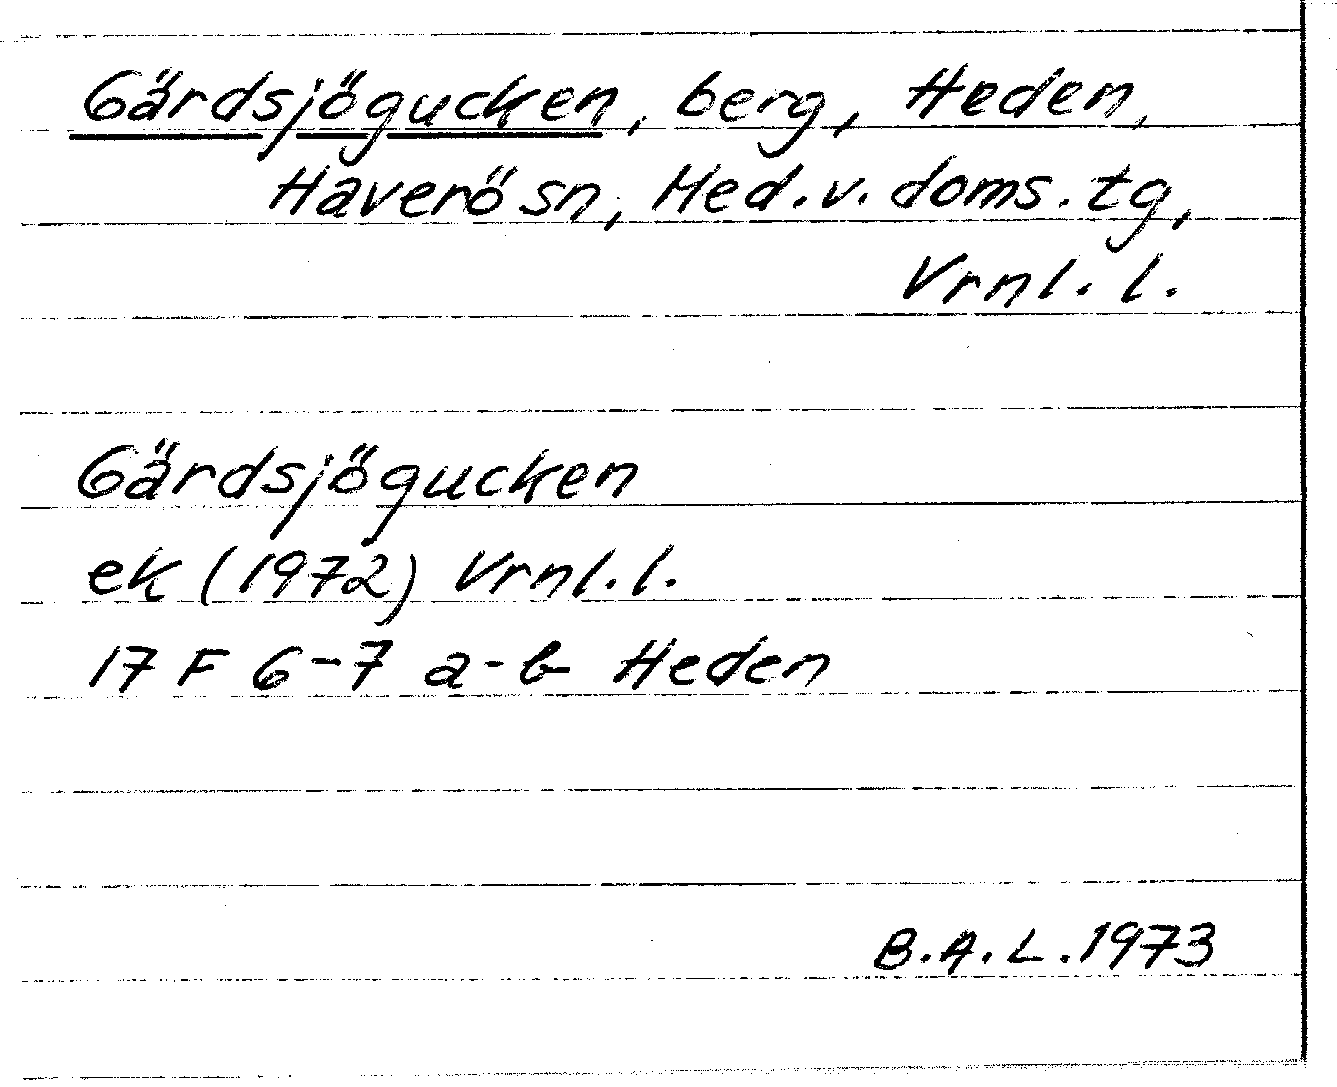 Gärdsjögucken, berg, Heden,
Haverö sn, Med.v. doms.tg,
Vrnl. l.
Gärdsjögucken
ek (1972) Vrnl. l.
17 F 6-7 a-b Heden
B.A.L. 1973